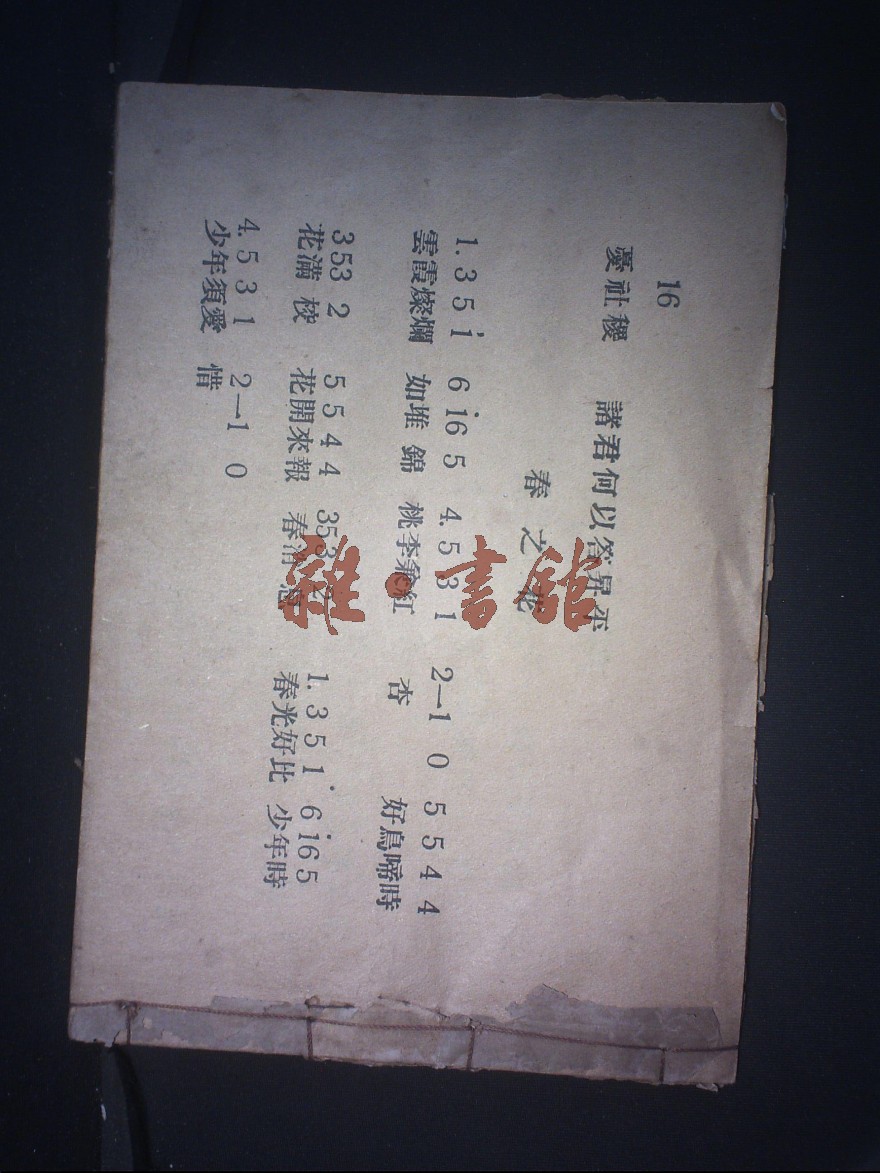 16
憂社稷 諸君何以答昇平
春之花
1. 3 5 i 6 i6 5 4. 5 3 1 2—1 0 5 5 4 4
雲霞燦爛 如堆錦 桃李兼紅 杏 好鳥啼時
3 53 2 5 5 4 4 353 2 1. 3 5 1· 6 i6 5
花滿 花開來報 春消息 春光好比 少年時
4. 5 3 1 2—1 0
少年須愛 惜